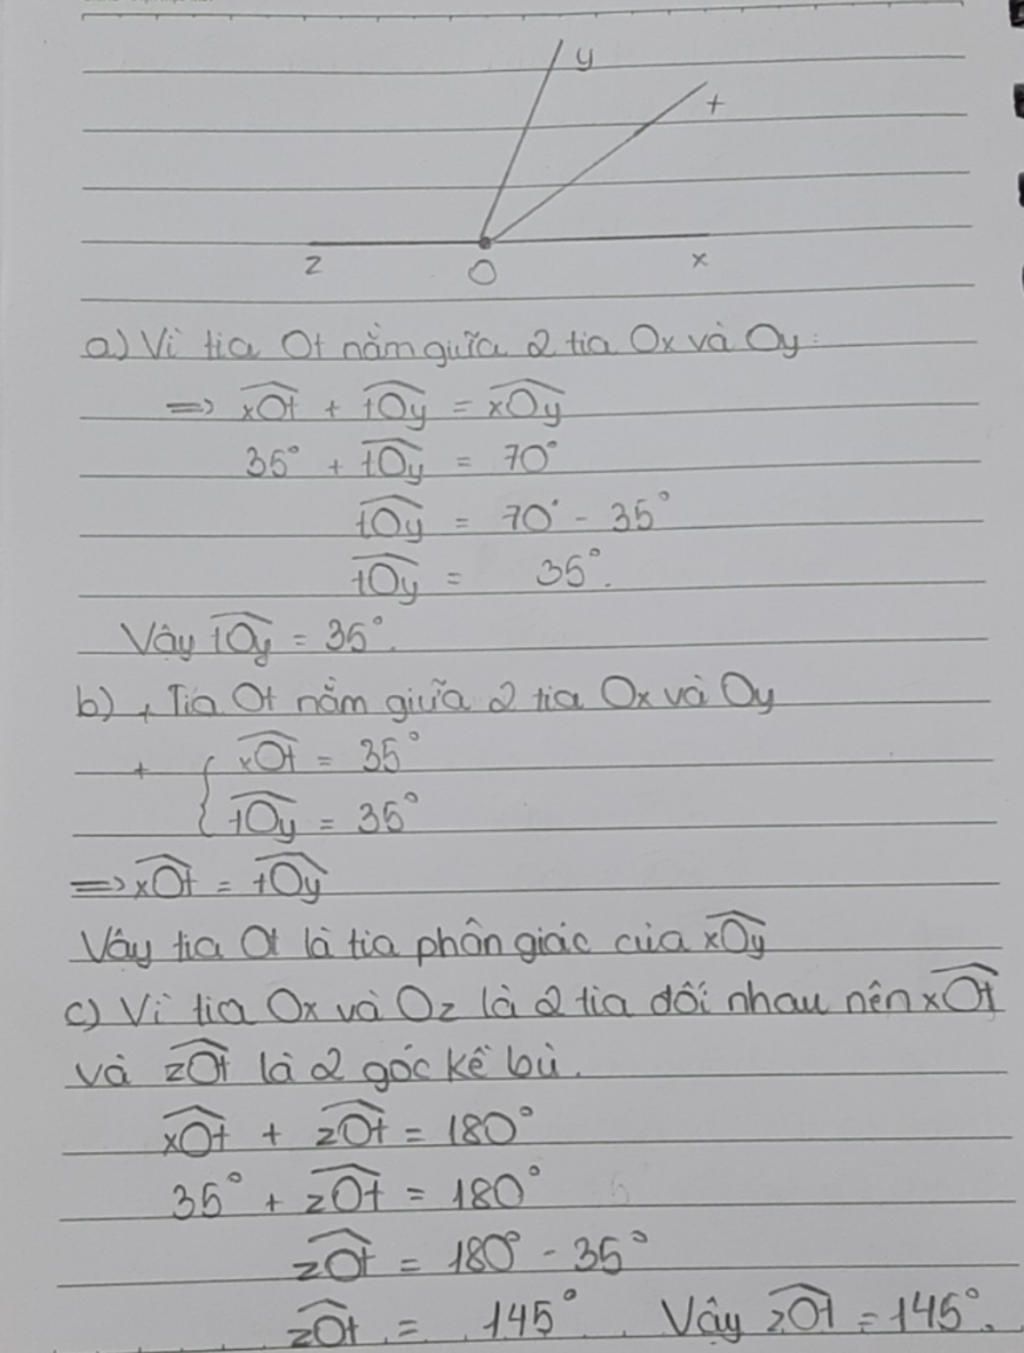 y
t
z O x
a) Vì tia Ot nằm giữa 2 tia Ox và Oy:
=> xOt + tOy = xOy
35° + tOy = 70°
tOy = 70° - 35°
tOy = 35°.
Vậy tOy = 35°.
b) + Tia Ot nằm giữa 2 tia Ox và Oy
+ { xOt = 35°
tOy = 35°
=> xOt = tOy
Vậy tia Ot là tia phân giác của xOy
c) Vì tia Ox và Oz là 2 tia đối nhau nên xOt
và zOt là 2 góc kề bù.
xOt + zOt = 180°
35° + zOt = 180°
zOt = 180° - 35°
zOt = 145° Vậy zOt = 145°.